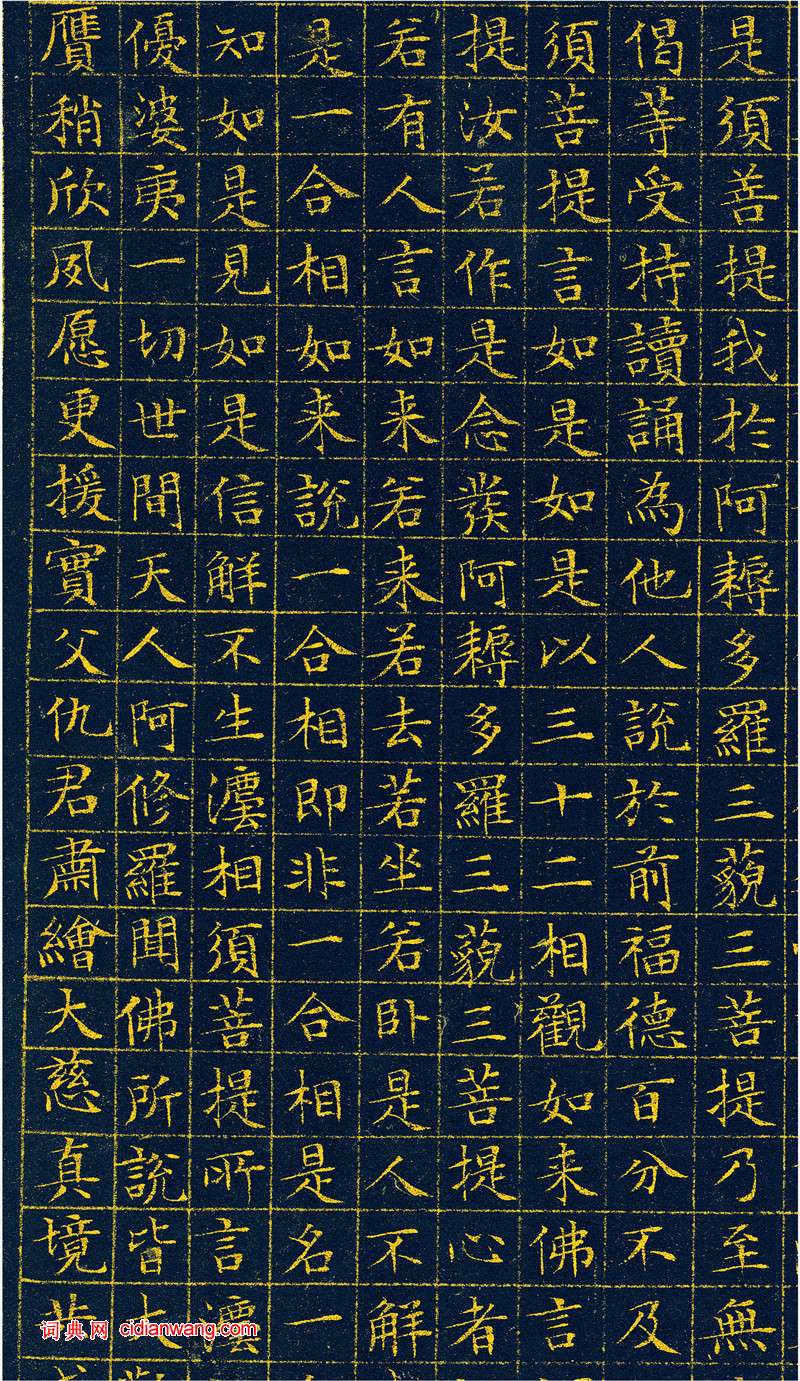 是須菩提我於阿耨多羅三藐三菩提乃至無
偈等受持讀誦為他人說於前福德百分不及
須菩提言如是如是以三十二相觀如来佛言
提汝若作是念發阿耨多羅三藐三菩提心者
若有人言如来若来若去若坐若卧是人不解
是一合相如来說一合相即非一合相是名一
知如是見如是信解不生法相須菩提所言法
優婆夷一切世間天人阿修羅聞佛所說皆大
贋稍欣夙愿更援實父仇君肅繪大慈真境
词典网 cidianwang.com